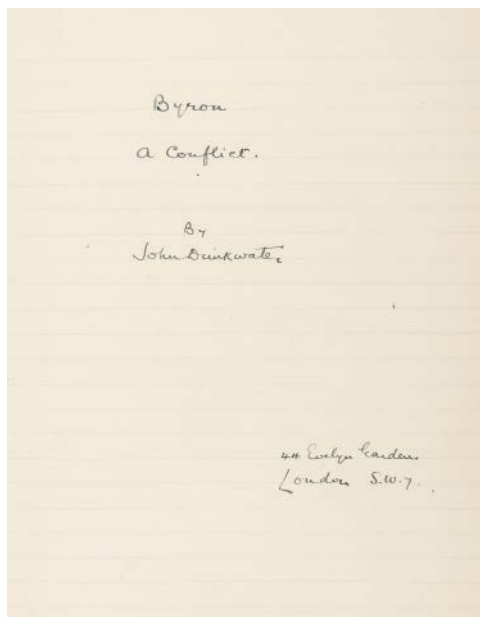 Byron
A Conflict.
By
John Drinkwater
44 Evelyn Gardens
London S.W.7.